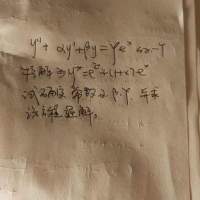 y'' + αy' + βy = γe^x
特解为 y* = e^{2x} + (1+x)e^x
试确定常数 α β γ 并求
该方程通解。